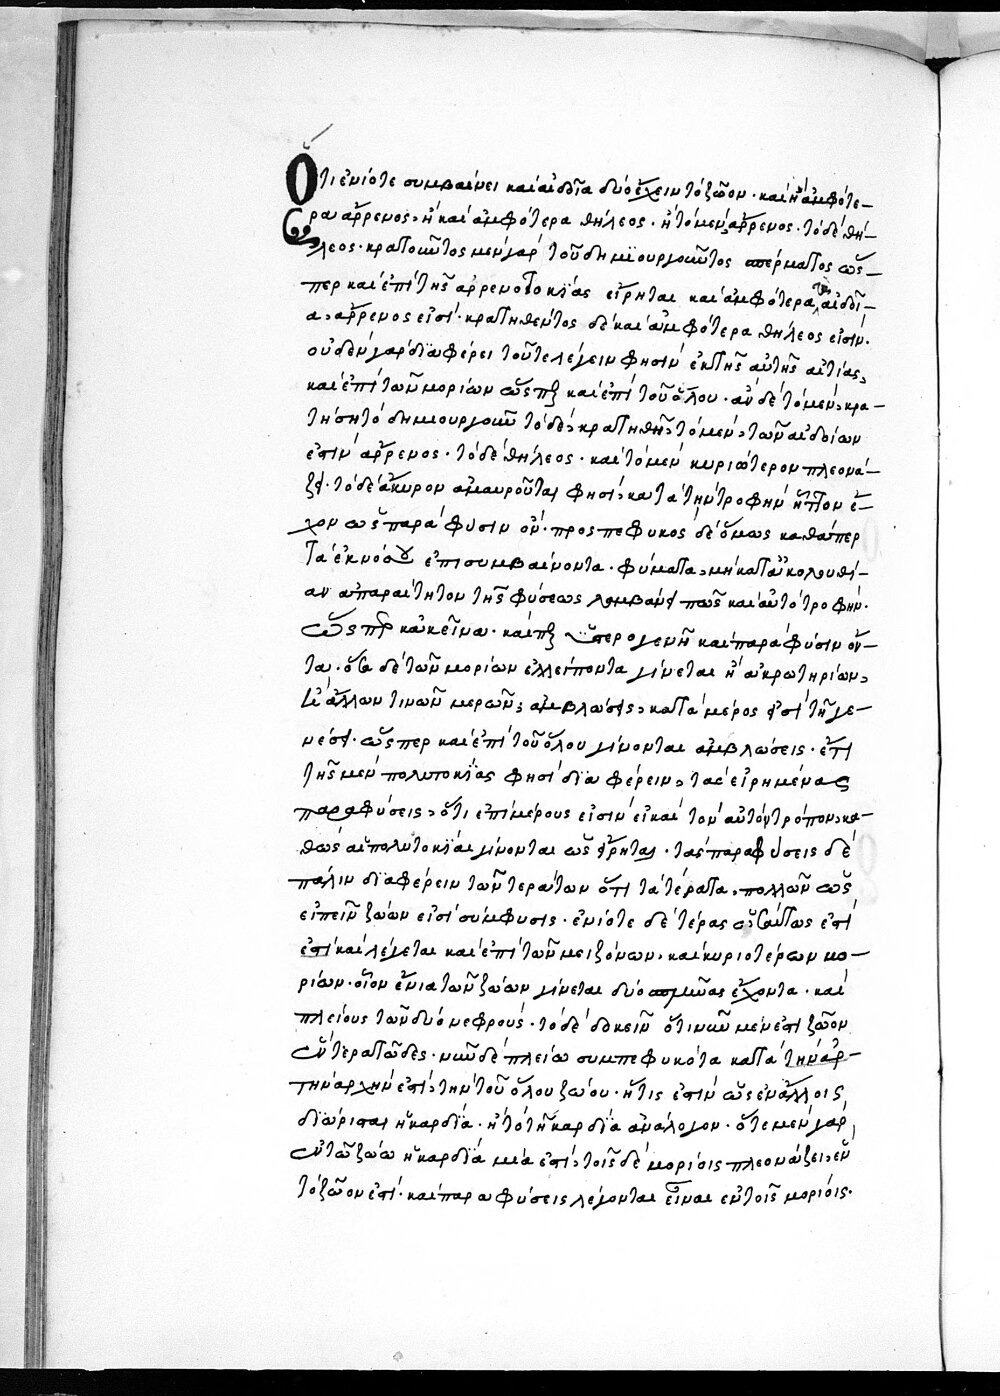 Ὅτι ἐνίοτε συμβαίνει καὶ αἰδοῖα δύο ἔχειν τὸ ζῶον· καὶ ἢ ἀμφότε-
ρα ἄρρενος, ἢ καὶ ἀμφότερα θήλεος· ἢ τὸ μὲν, ἄρρενος· τὸ δὲ θή-
λεος· κρατοῦντος μὲν γὰρ τοῦ δημιουργοῦντος σπέρματος ὥσ-
περ καὶ ἐπὶ τῆς ἀρρενοτοκίας εἴρηται καὶ ἀμφότερα τὰ αἰδοῖ-
α, ἄρρενος εἰσί· κρατηθέντος δὲ καὶ ἀμφότερα θήλεος εἰσίν·
οὐδὲν γὰρ διαφέρει τοῦτε λέγειν φησὶν ἐκ τῆς αὐτῆς αἰτίας,
καὶ ἐπὶ τῶν μορίων ὥσπερ καὶ ἐπὶ τοῦ ὅλου· ἂν δὲ τὸ μὲν, κρα-
τήση τὸ δημιουργοῦν τὸ δὲ, κρατηθῆ, τὸ μὲν, τῶν αἰδοίων
ἐστὶν ἄρρενος· τὸ δὲ θήλεος· καὶ τὸ μὲν κυριώτερον πλεονά-
ζει· τὸ δὲ ἄκυρον ἀμαυροῦται φησὶ, κατὰ τὴν τροφὴν ἧττον ἔ-
χον ὡς παρὰ φύσιν ὄν· προσπεφυκὸς δὲ ὅμως καθάπερ
τὰ ἐκ νόσου ἐπισυμβαίνοντα· φύματα, μὴ κατ' ἀκολουθί-
αν ἀπαραίτητον τῆς φύσεως λαμβάνει πως καὶ αὐτὸ τροφήν·
ὥσπερ κἀκεῖνα· καίπερ ὑστερογενῆ καὶ παρὰ φύσιν ὄν-
τα· ὅσα δὲ τῶν μορίων ἐλλείποντα γίνεται ἢ ἀκρωτηρίων,
ἢ ἄλλων τινῶν μερῶν, ἀμβλώσεις, κατὰ μέρος εἰσὶ τῇ γε-
νέσει· ὥσπερ καὶ ἐπὶ τοῦ ὅλου γίνονται ἀμβλώσεις· ἔτι
τῆς μὲν πολυτοκίας φησὶ διαφέρειν, τὰς εἰρημένας
παραφύσεις, ὅτι ἐπὶ μέρους εἰσὶν εἰ καὶ τὸν αὐτὸν τρόπον, κα-
θὼς αἱ πολυτοκίαι γίνονται ὡς εἴρηται· τὰς παραφύσεις δὲ
πάλιν διαφέρειν τῶν τεράτων ὅτι τὰ τέρατα, πολλῶν ὡς
εἰπεῖν ζώων εἰσὶ σύμφυσις· ἐνίοτε δὲ τέρας οὕτως ἐστὶ
ἐστὶ καὶ λέγεται καὶ ἐπὶ τῶν μειζόνων, καὶ κυριοτέρων μο-
ρίων· οἷον ἔνια τῶν ζώων γίνεται δύο σπλῆνας ἔχοντα· καὶ
πλείους τῶν δύο νεφρούς· τὸ δὲ δοκεῖν ὅτι νῦν μὲν ἐστι ζῶον
ἓν τερατῶδες· νῦν δὲ πλείω συμπεφυκότα κατὰ τὴν ἀρ-
τὴν ἀρχήν ἐστι, τὴν τοῦ ὅλου ζώου· ἥτις ἐστὶν ὡς ἐν ἄλλοις
διώρισται ἡ καρδία· ἢ τὸ τῇ καρδία ἀνάλογον· ὅτε μὲν γὰρ
ἐν τῶ ζώω ἡ καρδία μία ἐστὶ, τοῖς δὲ μορίοις πλεονάζει, ἓν
τὸ ζῶον ἐστί· καὶ παραφύσεις λέγονται εἶναι ἐν τοῖς μορίοις·